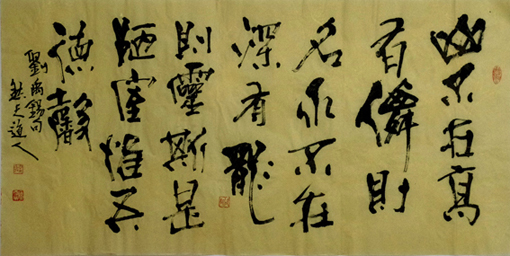 山不在高
有僊則
名水不在
深有龍
則靈斯是
陋室惟吾
德馨
劉禹錫句
道人